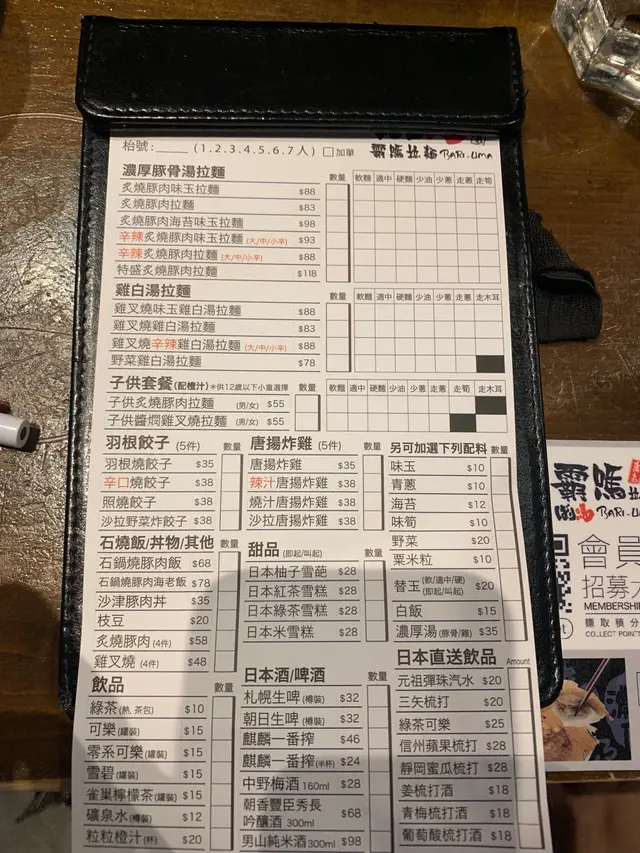 枱號:_____ (1.2.3.4.5.6.7人) □加單
霸嗎拉麵 BARI-UMA
濃厚豚骨湯拉麵 數量 軟麵 適中 硬麵 少油 少蔥 走蔥 走筍
炙燒豚肉味玉拉麵 $88
炙燒豚肉拉麵 $83
炙燒豚肉海苔味玉拉麵 $98
辛辣炙燒豚肉味玉拉麵 (大/中/小辛) $93
辛辣炙燒豚肉拉麵 (大/中/小辛) $88
特盛炙燒豚肉拉麵 $118
雞白湯拉麵 數量 軟麵 適中 硬麵 少油 少蔥 走蔥 走木耳
雞叉燒味玉雞白湯拉麵 $88
雞叉燒雞白湯拉麵 $83
雞叉燒辛辣雞白湯拉麵 (大/中/小辛) $88
野菜雞白湯拉麵 $78
子供套餐(配橙汁) *供12歲以下小童選擇 數量 軟麵 適中 硬麵 少油 少蔥 走蔥 走筍 走木耳
子供炙燒豚肉拉麵 (男/女) $55
子供醬燜雞叉燒拉麵 (男/女) $55
羽根餃子 (5件) 數量
羽根燒餃子 $35
辛口燒餃子 $38
照燒餃子 $38
沙拉野菜炸餃子 $38
唐揚炸雞 (5件) 數量
唐揚炸雞 $35
辣汁唐揚炸雞 $38
燒汁唐揚炸雞 $38
沙拉唐揚炸雞 $38
另可加選下列配料 數量
味玉 $10
青蔥 $10
海苔 $12
味筍 $10
野菜 $20
粟米粒 $10
替玉 (軟/適中/硬) (即起/叫起) $20
白飯 $15
濃厚湯 (豚骨/雞) $35
石燒飯/丼物/其他 數量
石鍋燒豚肉飯 $68
石鍋燒豚肉海老飯 $78
沙津豚肉丼 $35
枝豆 $20
炙燒豚肉 (4件) $58
雞叉燒 (4件) $48
甜品 (即起/叫起) 數量
日本柚子雪葩 $28
日本紅茶雪糕 $28
日本綠茶雪糕 $28
日本米雪糕 $28
飲品 數量
綠茶(熱, 茶包) $10
可樂(罐裝) $15
零系可樂(罐裝) $15
雪碧(罐裝) $15
雀巢檸檬茶(罐裝) $15
礦泉水(樽裝) $12
粒粒橙汁(杯) $20
日本酒/啤酒 數量
札幌生啤(樽裝) $32
朝日生啤(樽裝) $32
麒麟一番搾 $46
麒麟一番搾(半杯) $24
中野梅酒 160ml $28
朝香豐臣秀長
吟釀酒 300ml $68
男山純米酒 300ml $98
日本直送飲品 Amount
元祖彈珠汽水 $20
三矢梳打 $20
綠茶可樂 $25
信州蘋果梳打 $28
靜岡蜜瓜梳打 $28
姜梳打酒 $18
青梅梳打酒 $18
葡萄酸梳打酒 $18
霸嗎拉
BARI-U
會員
招募
MEMBERSHI
賺取積分
COLLECT POINT